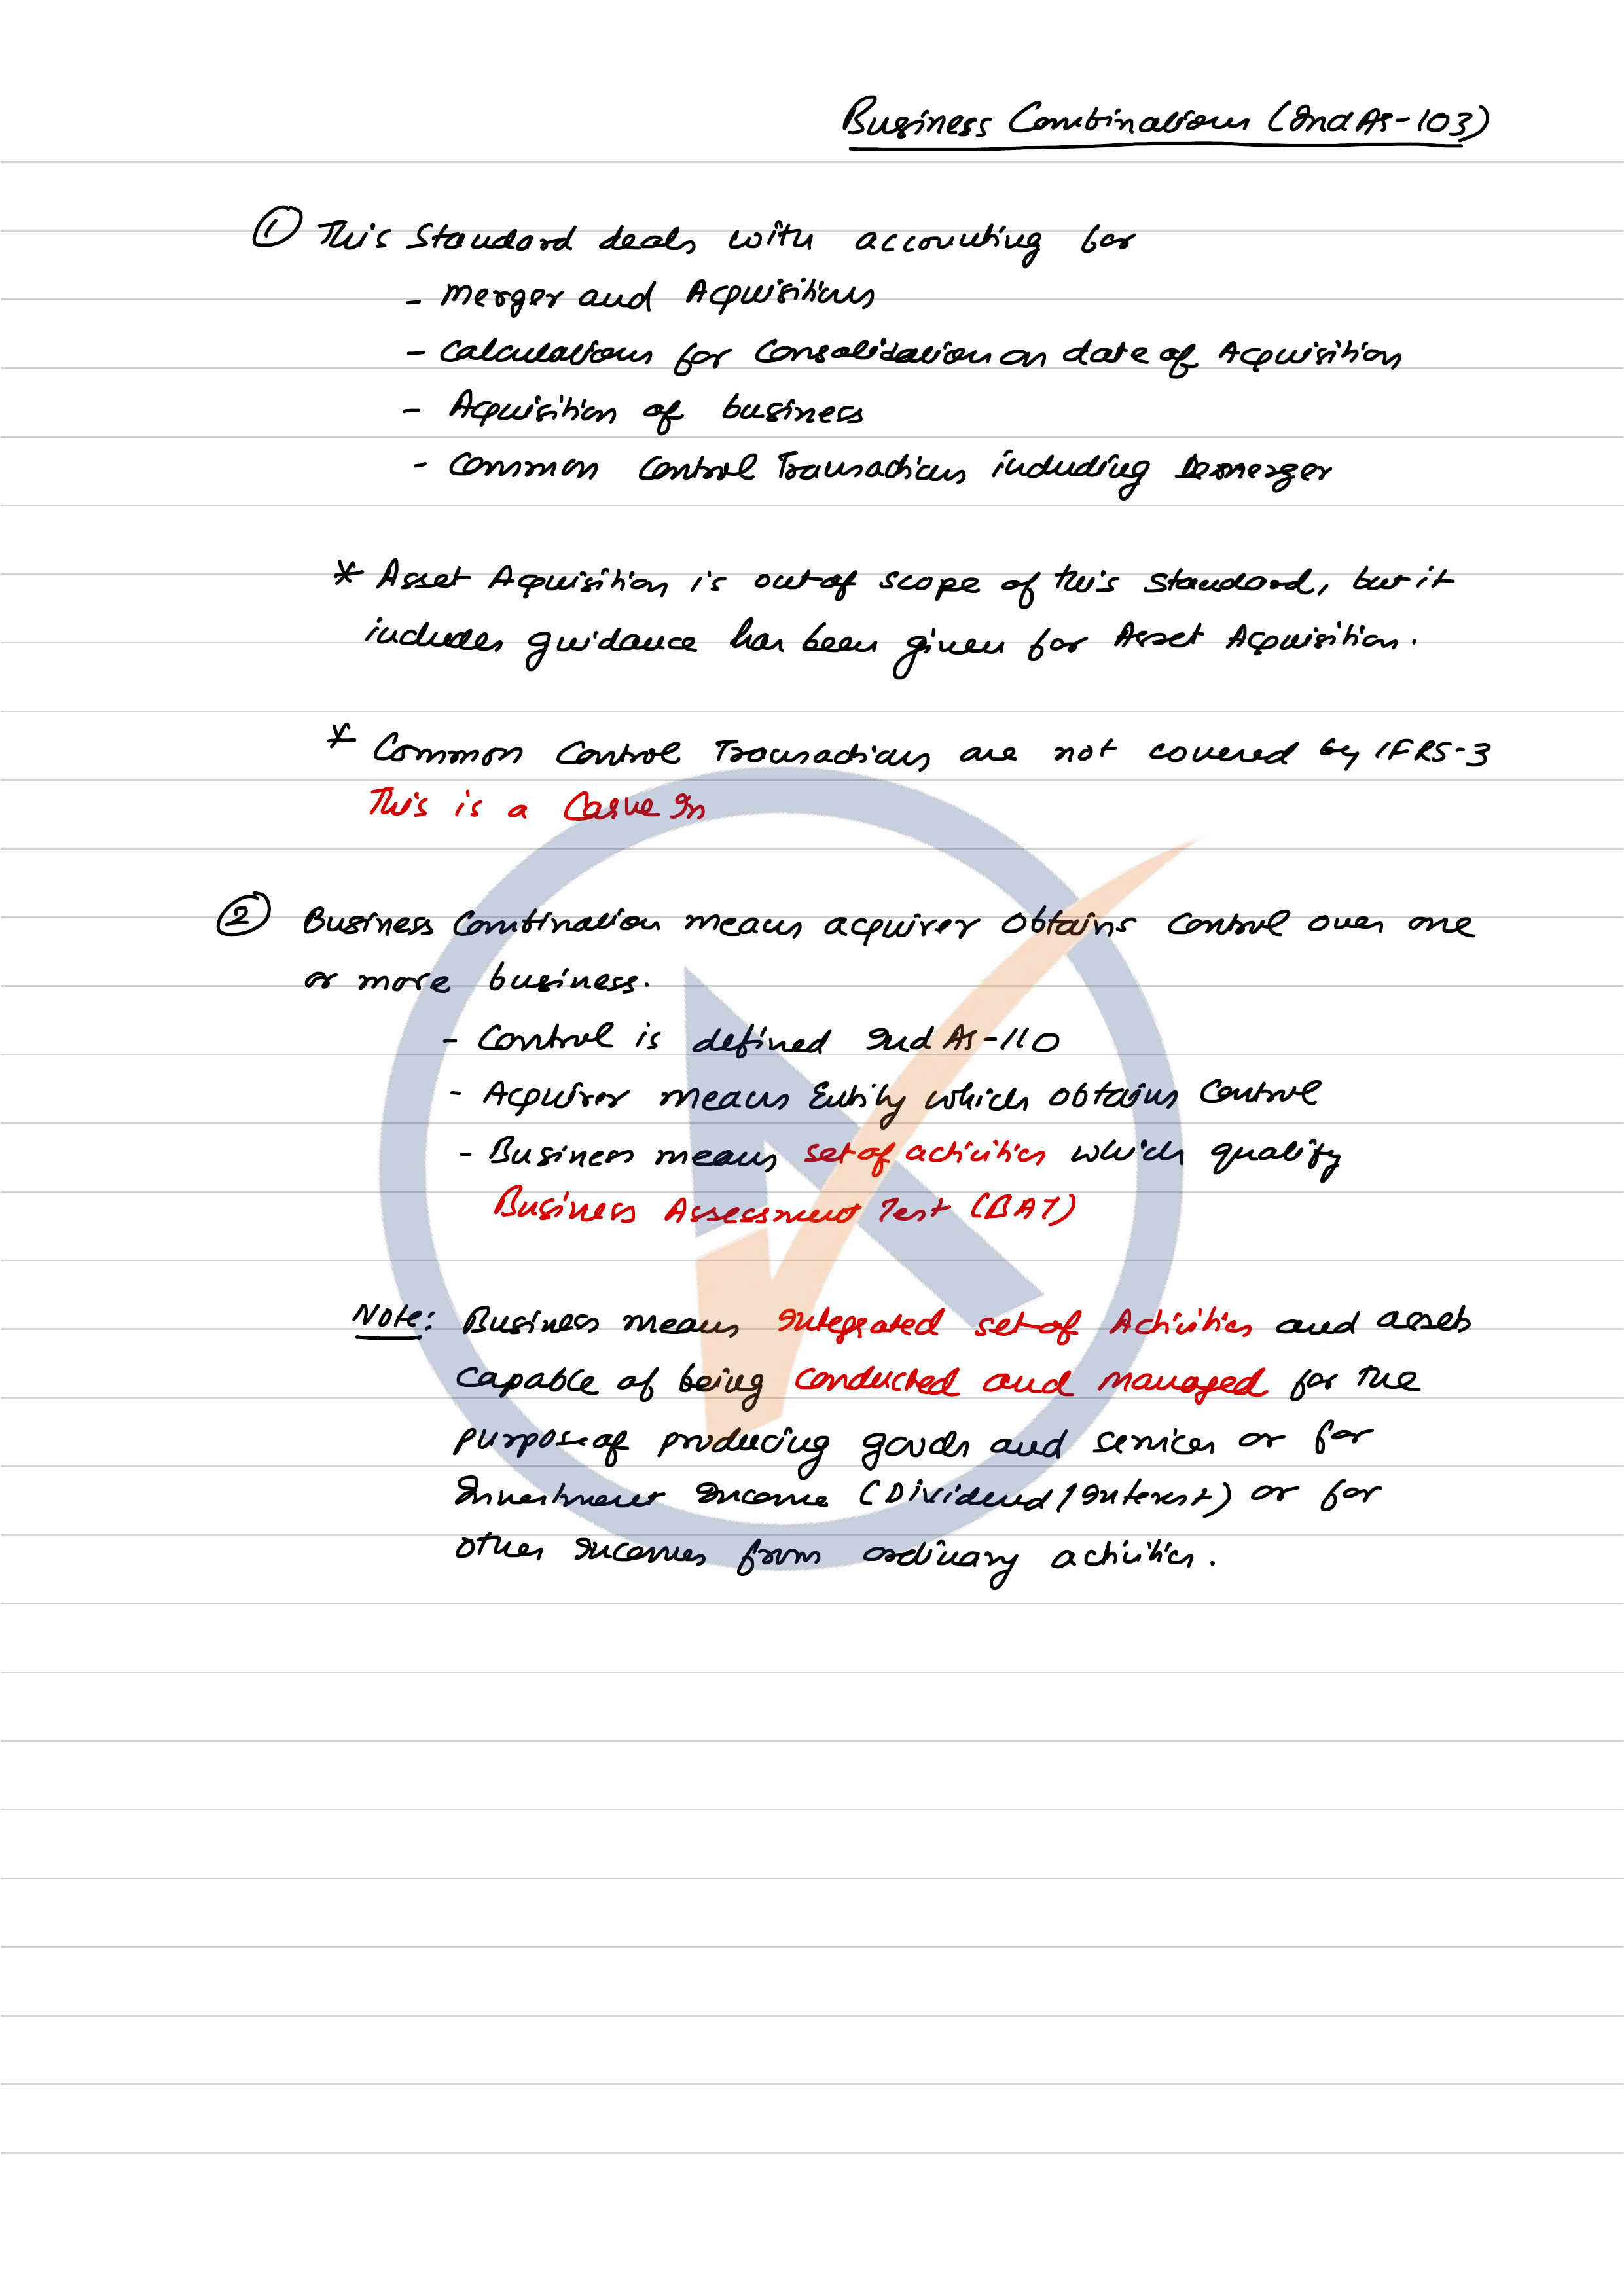 Business Combinations (Ind As-103)
① This Standard deals with accounting for
- Merger and Acquisitions
- Calculations for Consolidation on date of Acquisition
- Acquisition of business
- Common Control Transactions including Demerger
* Asset Acquisition is out of scope of this standard, but it
includes guidance has been given for Asset Acquisition.
* Common Control Transactions are not covered by IFRS-3
This is a Carve In
② Business Combination means acquirer obtains control over one
or more business.
- Control is defined Ind As-110
- Acquirer means Entity which obtains Control
- Business means set of activities which qualify
Business Assessment Test (BAT)
Note: Business means Integrated set of Activities and assets
capable of being conducted and managed for the
purpose of producing goods and services or for
Investment Income (Dividend/Interest) or for
other incomes from ordinary activities.